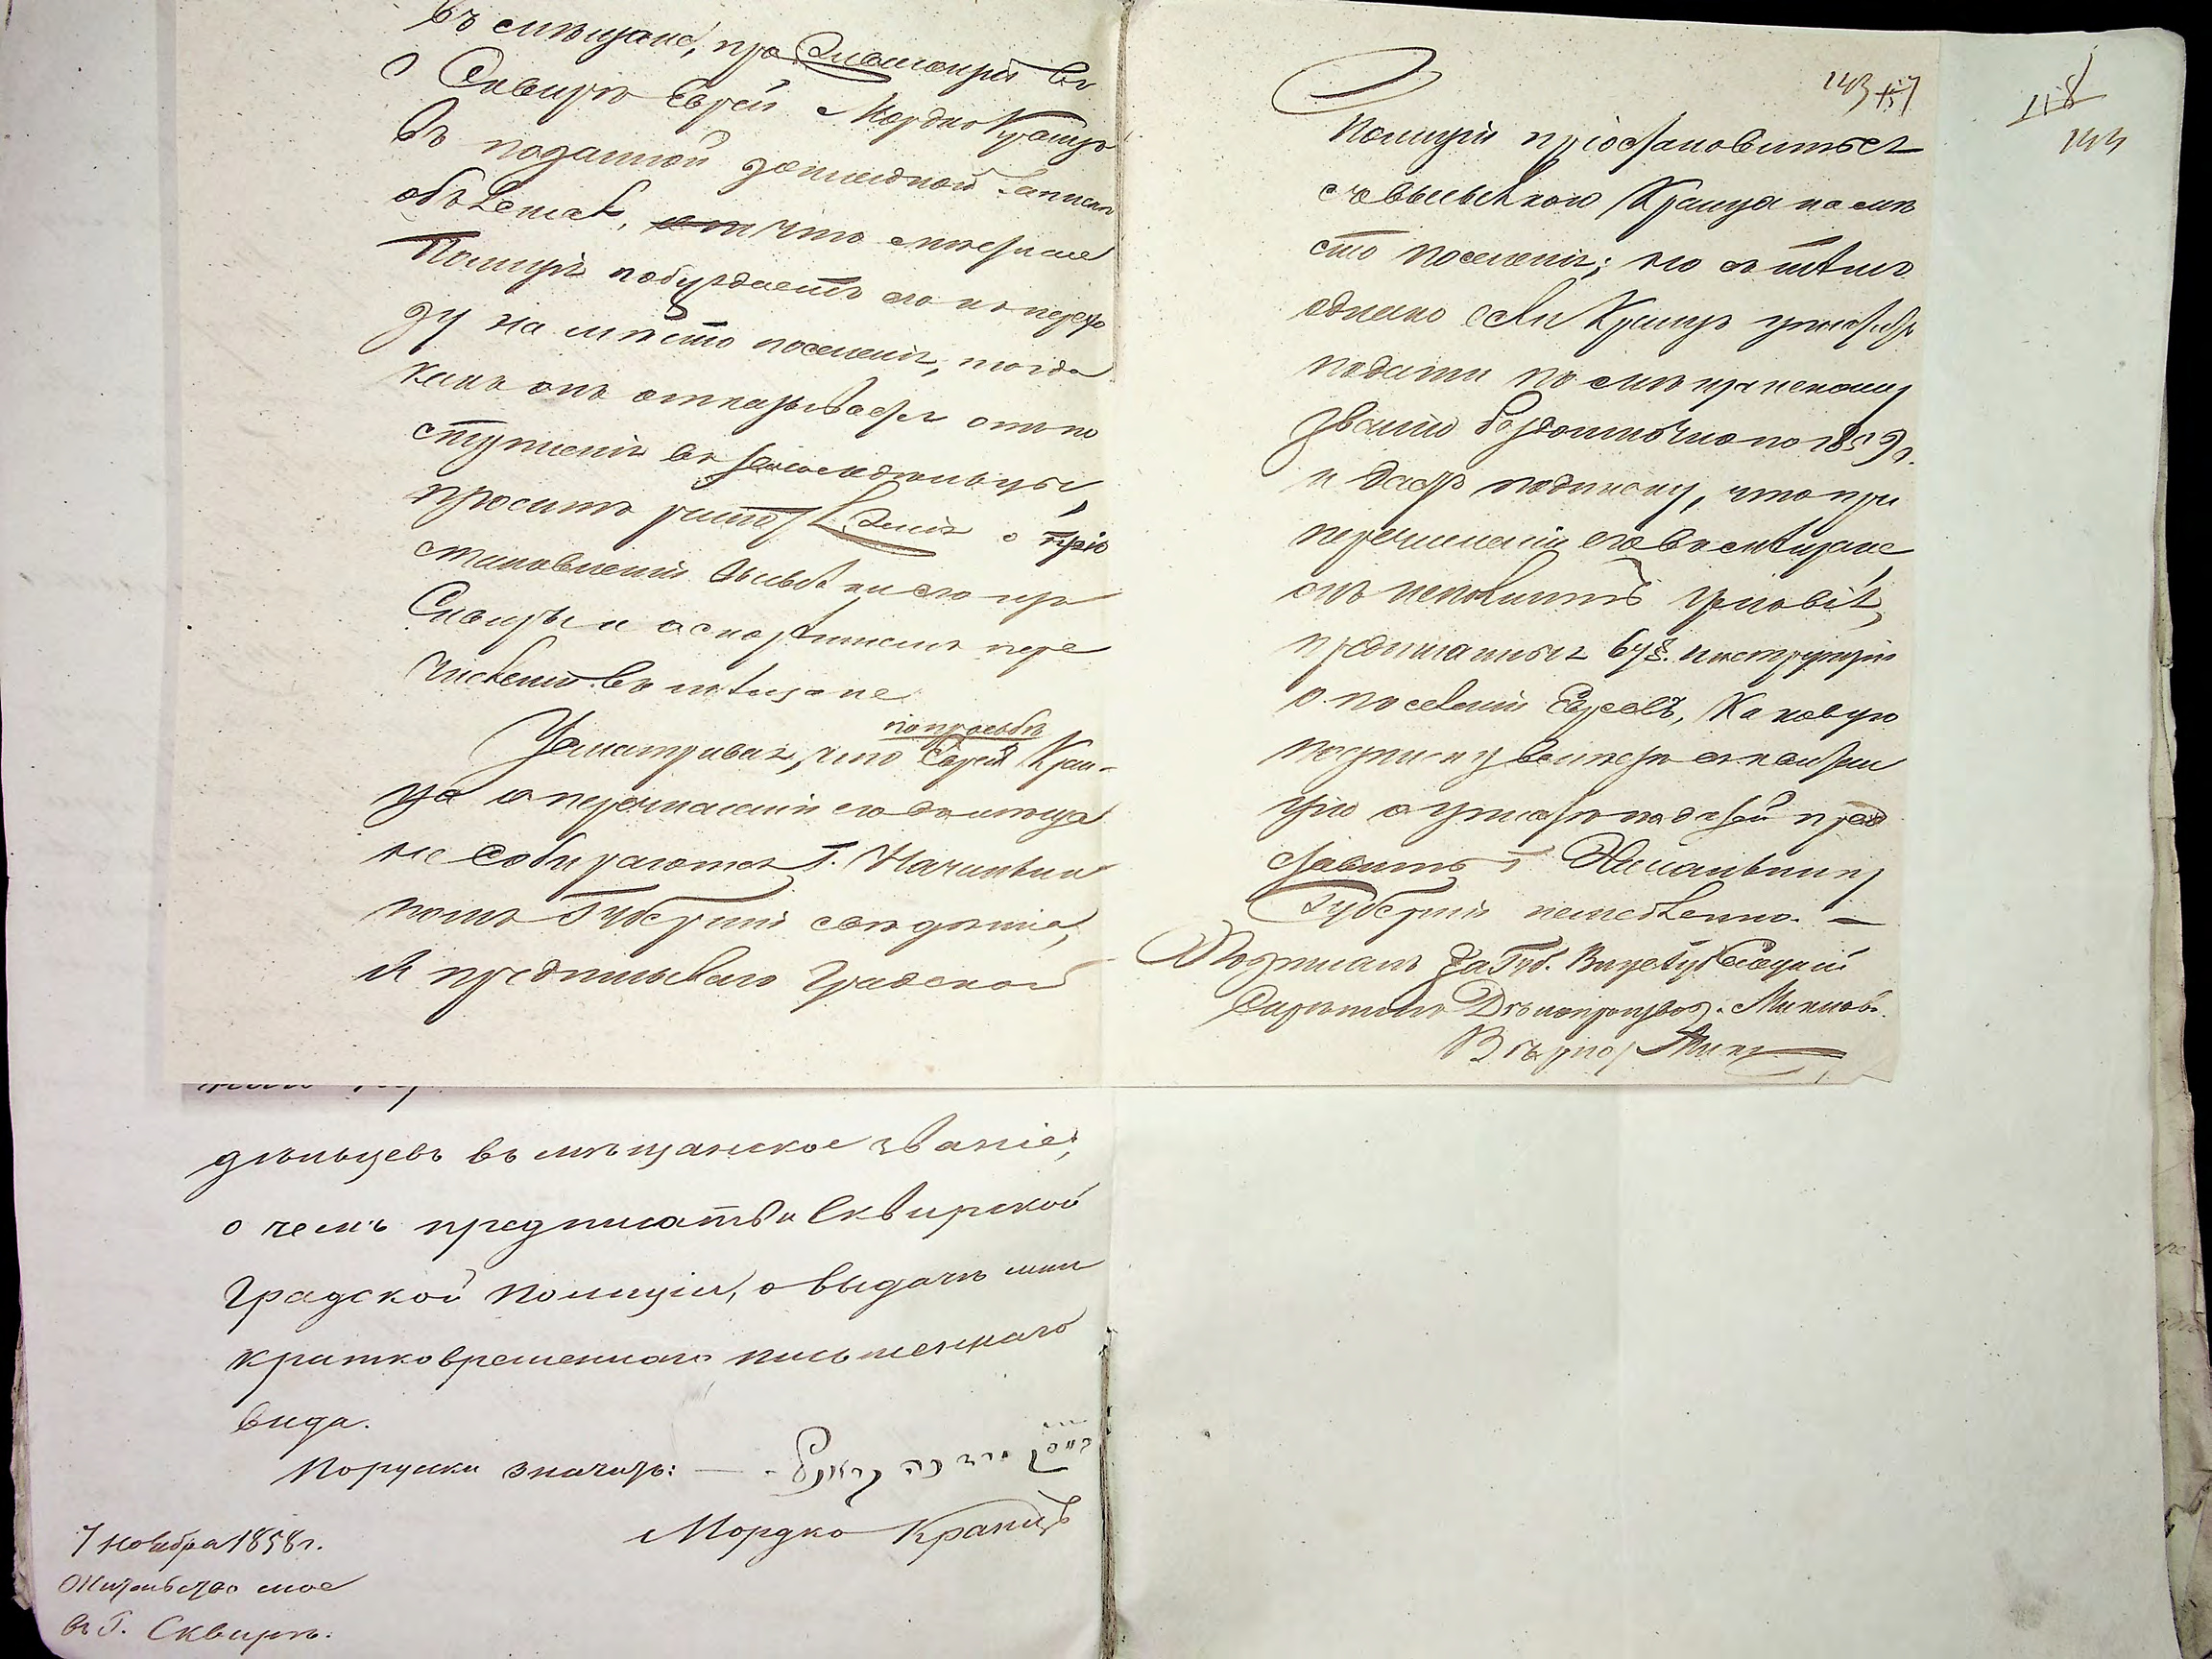 въ мѣщане, про въ
г Сквирѣ Еврей Мордко Кранцъ
въ поданной докладной запискѣ
объясняя, что мѣстная
Полиція побуждаетъ его къ переѣз
ду на мѣсто поселенія, тогда
какъ онъ отказывается отъ по
ступленія въ земледѣльцы,
проситъ о пріо
становленіи высылки его изъ
Сквиры и о перe
численіи въ мѣщане.
по просьбѣ
Усматривая, что Еврея Кран-
ца о перечисленіи его въ мѣща
не собираются Г. Начальни
комъ Губерніи свѣдѣнія,
я предписываю Градской
143
Полиціи пріостановиться
съ высылкою Кранца на мѣ
сто поселенія; но съ тѣмъ
однако если Кранцъ уплатитъ
подати по мѣщанскому
званію бездоимочно по 1859 г.
и дастъ подписку, что при
перечисленіи его въ мѣщане
онъ исполнитъ условія,
предписанныя 67 §. инструкціи
о поселеніи Евреевъ, каковую
подписку вмѣстѣ съ квитан
ціею о уплатѣ податей пред
ставить Г. Начальнику
Губерніи немедленно. —
Подписалъ За Губ. Вице Губ.
Скрѣпилъ Дѣлопроизвод.
Вѣрно:
118
144
дѣльцевъ въ мѣщанское званіе;
о чемъ предписать и Сквирской
Градской Полиціи, о выдачѣ мнѣ
кратковременнаго письменнаго
вида.
Поруски значитъ: —
Мордко Кранцъ
7 ноября 1858 г.
Жительство мое
въ Г. Сквирѣ.